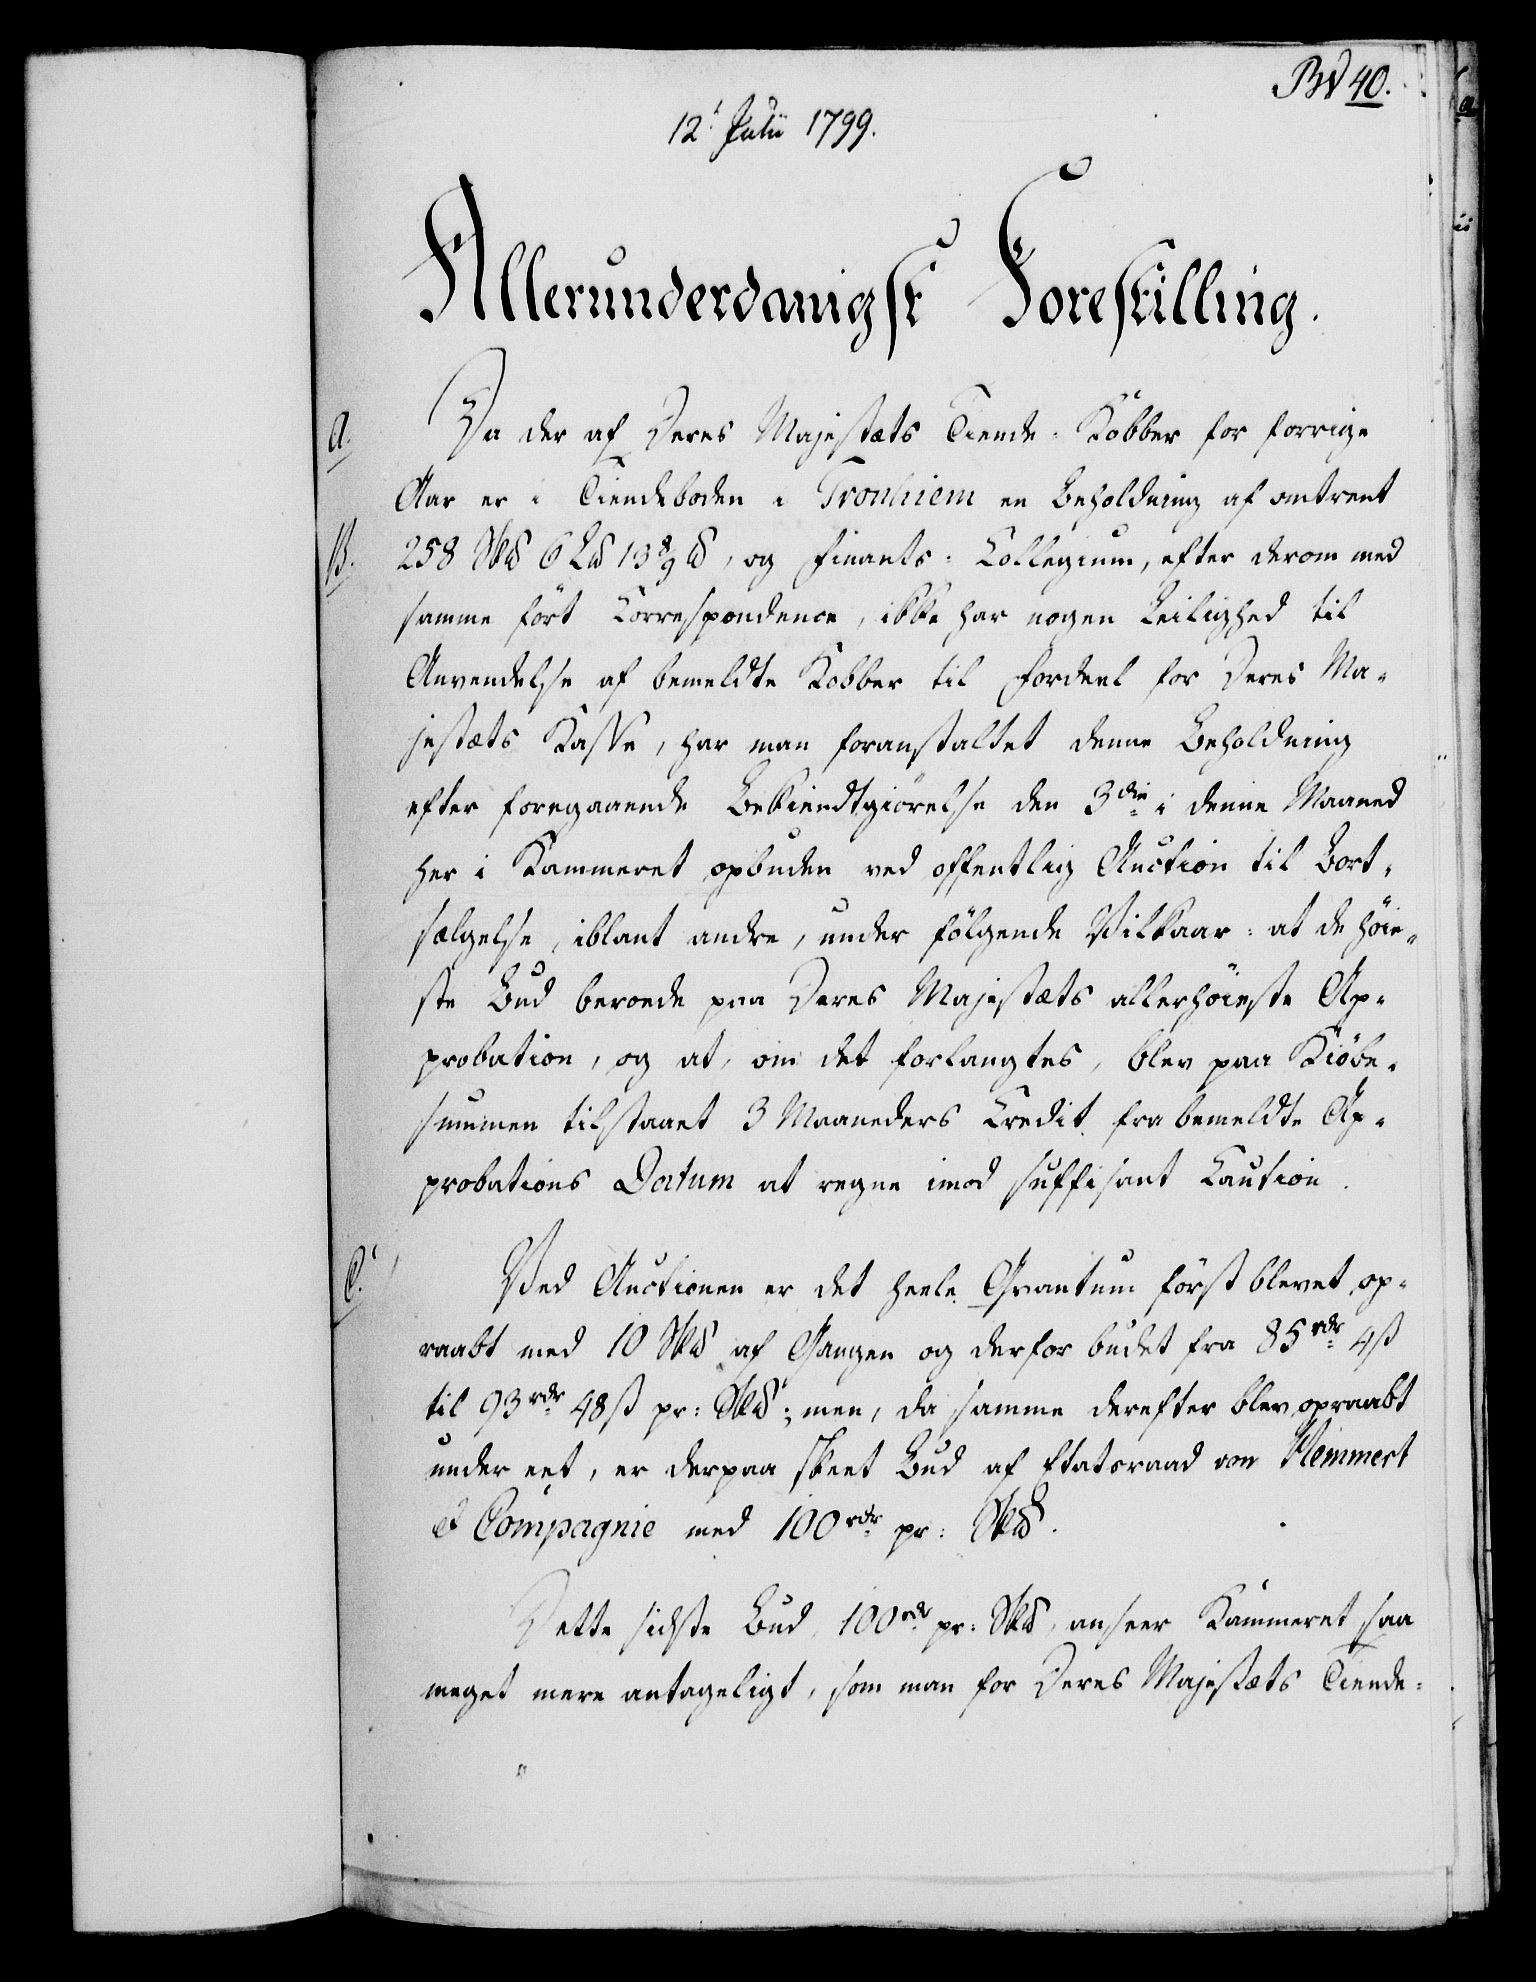 BW 40.
12t Julii 1799.
Allerunderdanigst Forestilling.
a. Da der af Deres Majestæts Tiende-Kobber for forrige
Aar er i Tiendeboden i Tronhiem en Beholdning af omtrent
B. 258 Sk℔ 6 L℔ 13 8/9 ℔, og Finants-Collegium, efter derom med
samme fört Correspondence, ikke har nogen Leilighed til
Anvendelse af bemeldte Kobber til Fordeel for Deres Ma-
jestæts Kasse, har man foranstaltet denne Beholdning
efter foregaaende Bekiendtgiörelse den 3die i denne Maaned
her i Kammeret opbuden ved offentlig Auction til Bort-
sælgelse, iblant andre, under fölgende Vilkaar: at de höie-
ste Bud beroede paa Deres Majestæts allerhöieste Ap-
probation, og at, om det forlangtes, blev paa Kiöbe-
summen tilstaaet 3 Maaneders Credit fra bemeldte Ap-
probations Datum at regne imod suffisant Caution.
C. Ved Auctionen er det heele Qvantum först blevet op-
raabt med 10 Sk℔ af Gangen og derfor budet fra 85 rdr 4 ß
til 93 rdr 48 ß pr: Sk℔; men, da samme derefter blev opraabt
under eet, er derpaa skeet Bud af Etatsraad von Hemmert
& Compagnie med 100 rdr pr: Sk℔.
Dette sidste Bud, 100 rdr pr: Sk℔, anseer Kammeret saa
meget mere antageligt, som man for Deres Majestæts Tiende-